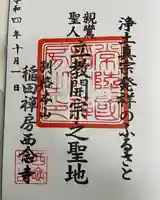 浄土真宗発祥のふるさと
親鸞聖人
立教開宗之聖地
別格本山
稲田禅房西念寺
令和四年十月一日